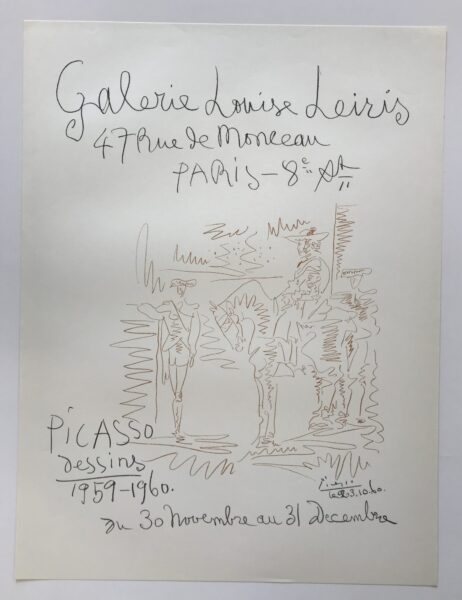 Galerie Louise Leiris
47 Rue de Monceau
PARIS - 8e Art
PICASSO
dessins
1959-1960.
3.10.60.
du 30 Novembre au 31 Decembre